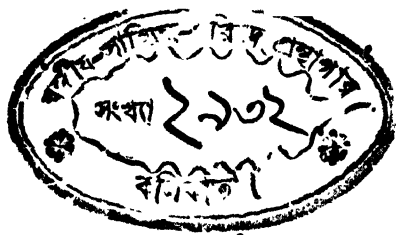 বঙ্গীয়-সাহিত্য-পরিষদ্ গ্রন্থাগার।
সংখ্যা ২৯৩২